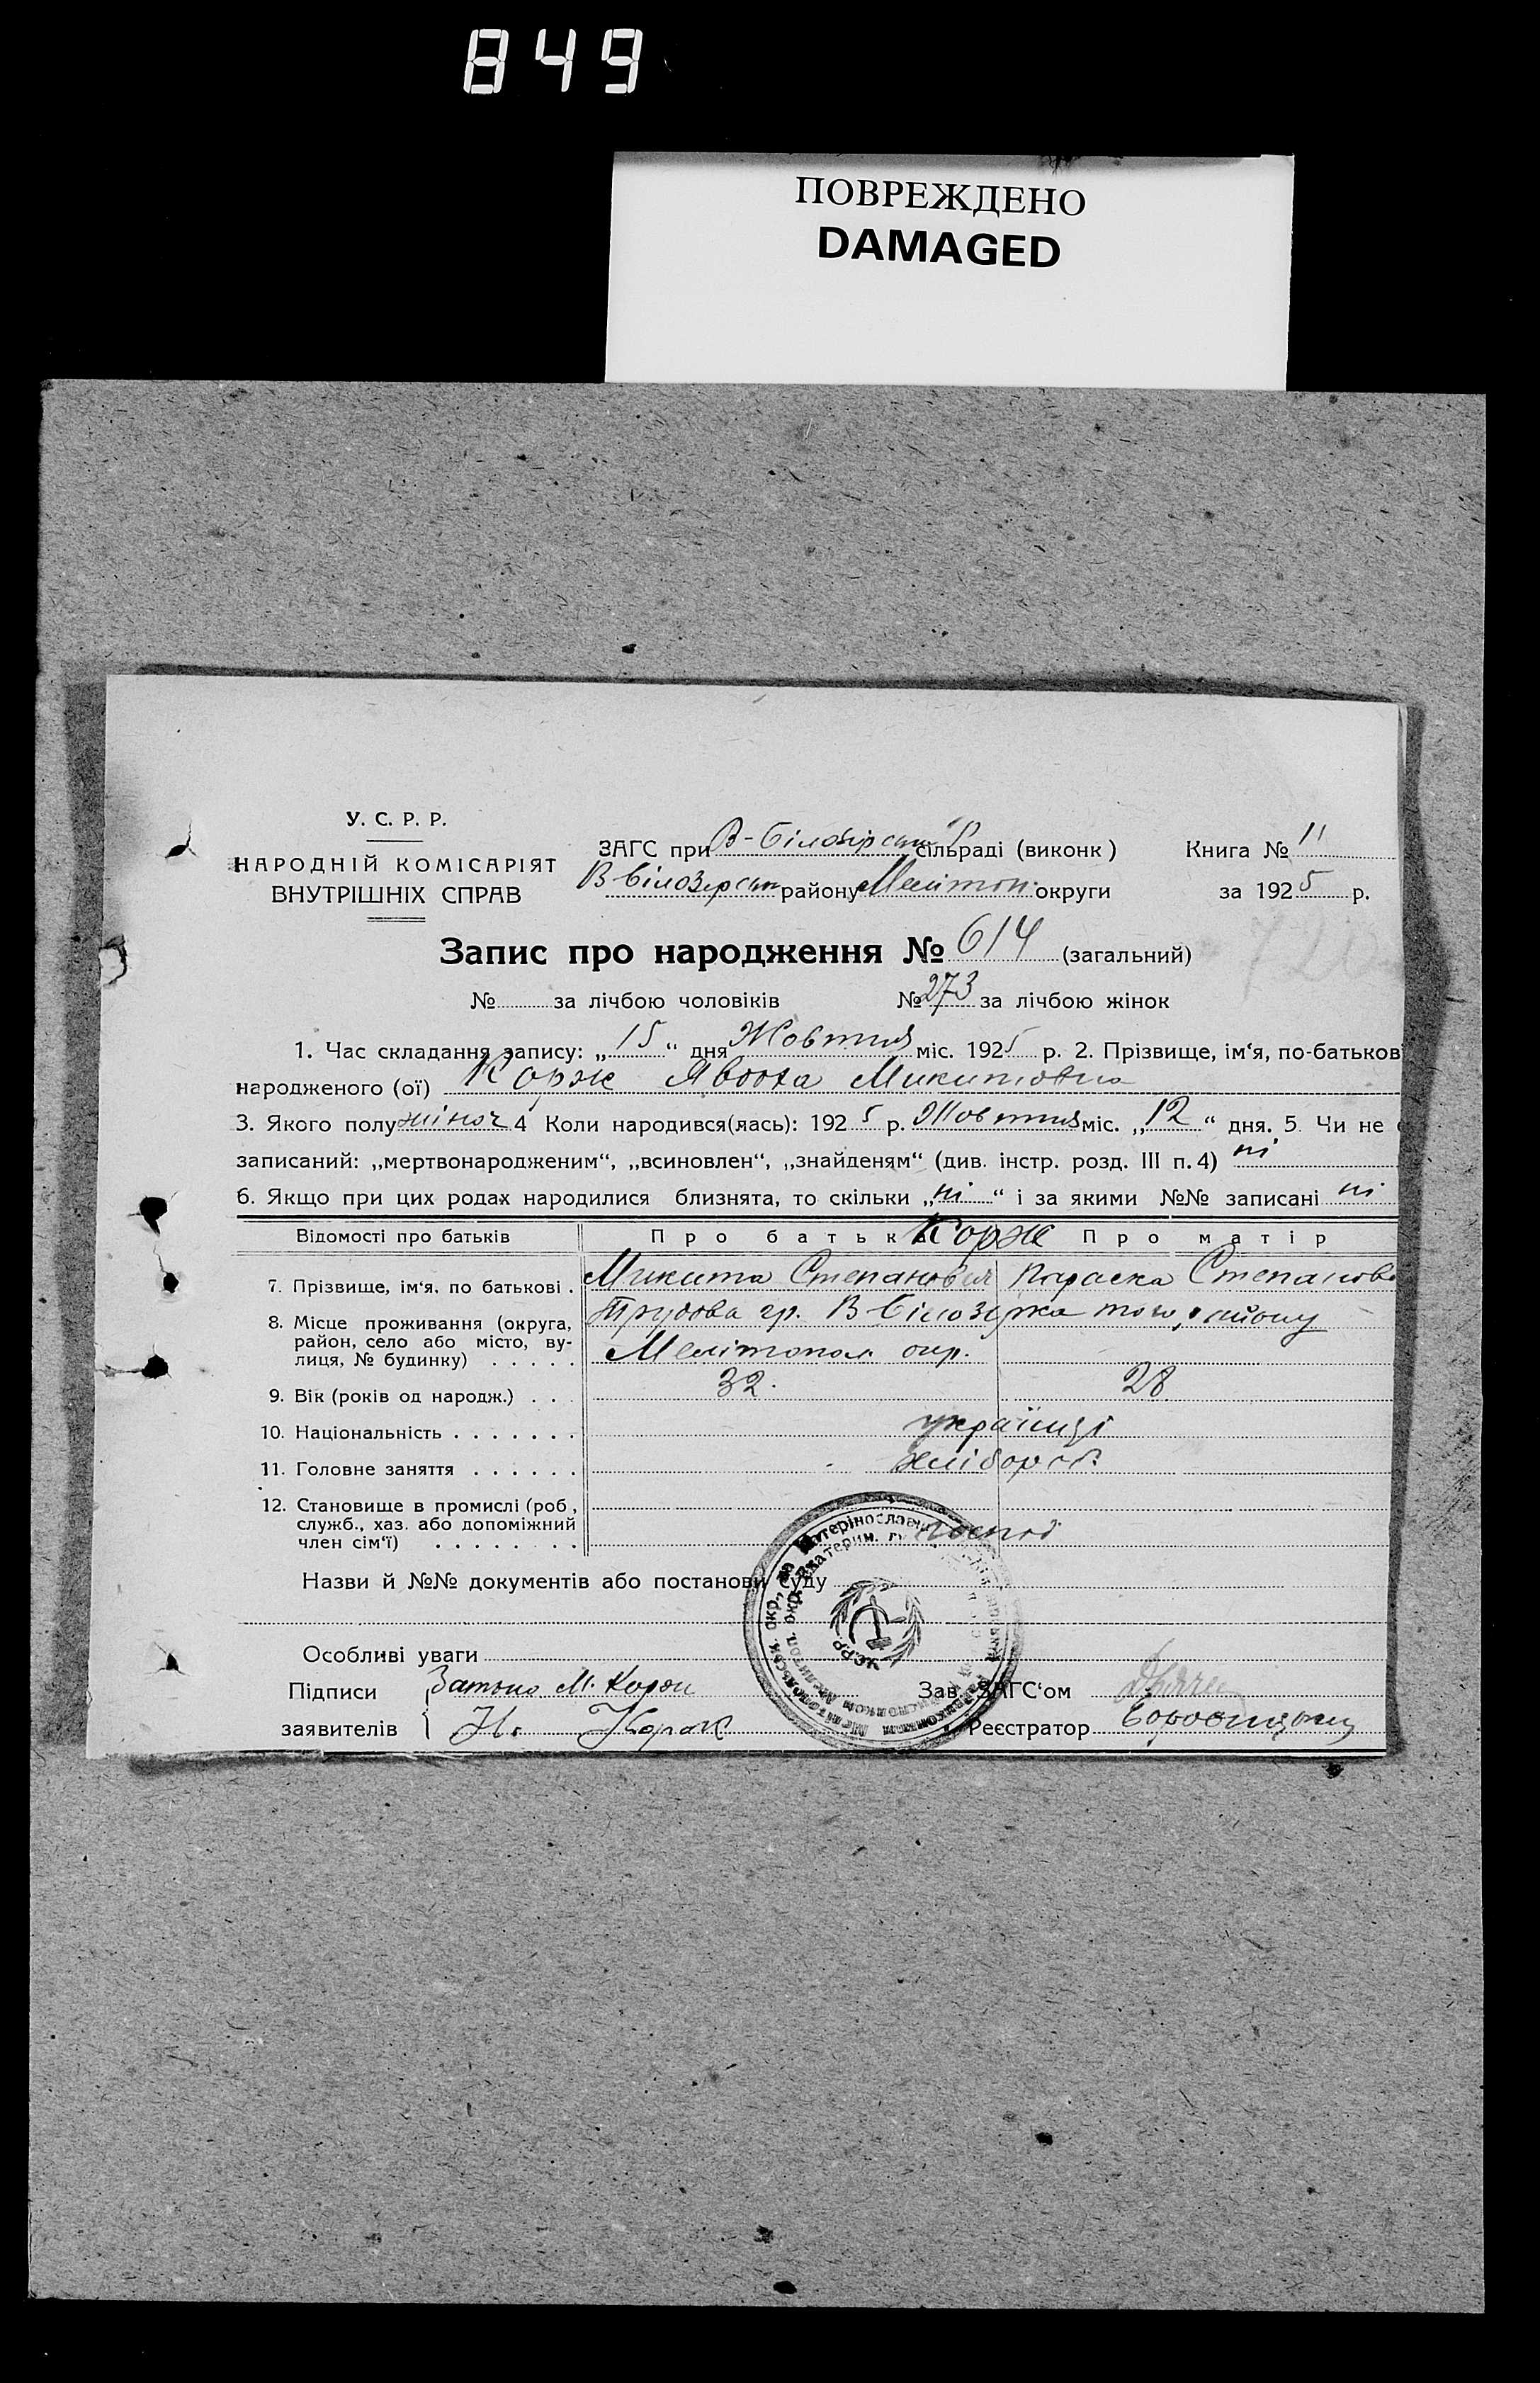 849
ПОВРЕЖДЕНО
DAMAGED
У. С. Р. Р.
НАРОДНІЙ КОМІСАРІЯТ
ВНУТРІШНІХ СПРАВ
ЗАГС при В-Білозірськ сільраді (виконк) Книга № 11
В Білозерськ району Мелітоп. округи за 1925 р.
Запис про народження № 614 (загальний)
№ за лічбою чоловіків № 273 за лічбою жінок
1. Час складання запису: „15“ дня Жовтня міс. 1925 р. 2. Прізвище, ім‘я, по-батькові
народженого (ої) Корж Явдоха Микитовна
3. Якого полу жіноч 4 Коли народився(лась): 1925 р. Жовтня міс. „12“ дня. 5. Чи не
записаний: „мертвонародженим“, „всиновлен“, „знайденям“ (див. інстр. розд. III п. 4) ні
6. Якщо при цих родах народилися близнята, то скільки „ні“ і за якими №№ записані ні
Відомості про батьків Про батьк Корж Про матір
7. Прізвище, ім‘я, по батькові . Микита Степанович Параска Степанов
8. Місце проживання (округа, район, село або місто, вулиця, № будинку) . . . . . гр. В-Білозірка того району
Мелітопол окр.
9. Вік (років од народж.) . . . 32. 28
10. Національність . . . . . . . українці
11. Головне заняття . . . . . . хлібороб.
12. Становище в промислі (роб, служб., хаз. або допоміжний член сім‘ї) . . . . . . . .
Назви й №№ документів або постанови суду
Особливі уваги
УСРР
Підписи М. Корж Зав. ЗАГС‘ом
заявителів Н. Корж Реєстратор